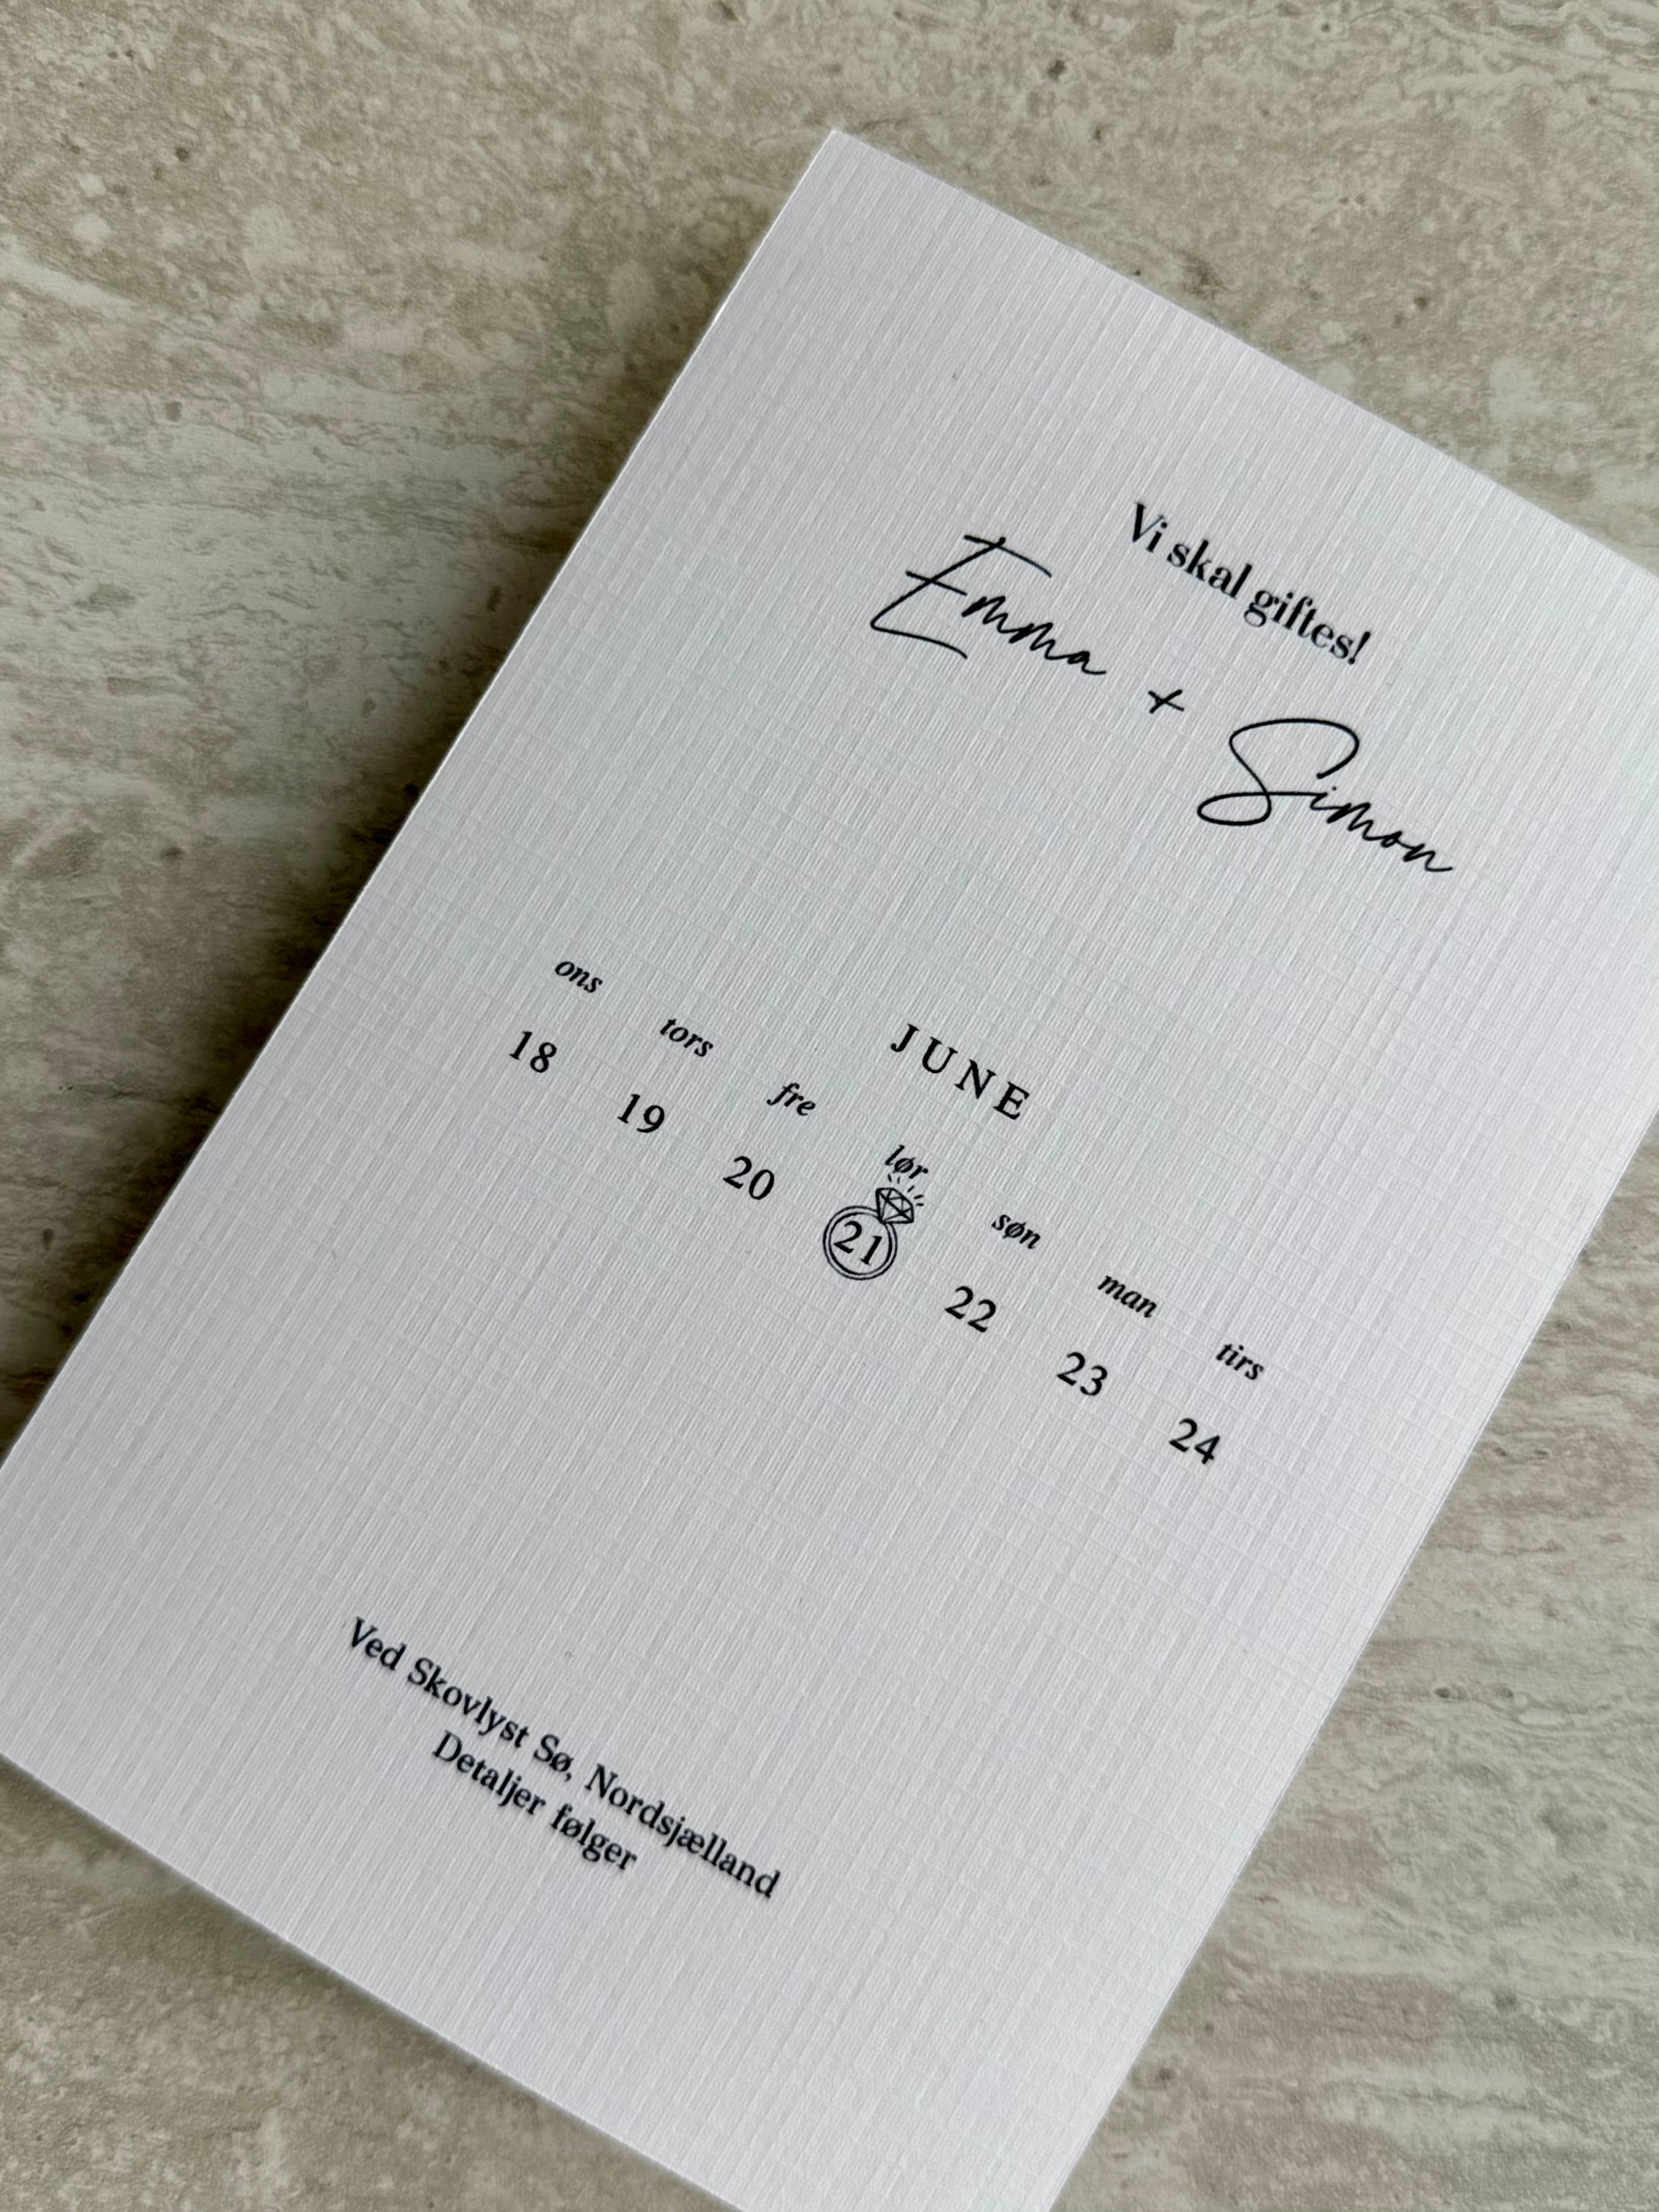 Vi skal giftes!
Emma + Simon
JUNE
ons tors fre lør søn man tirs
18 19 20 21 22 23 24
Ved Skovlyst Sø, Nordsjælland
Detaljer følger